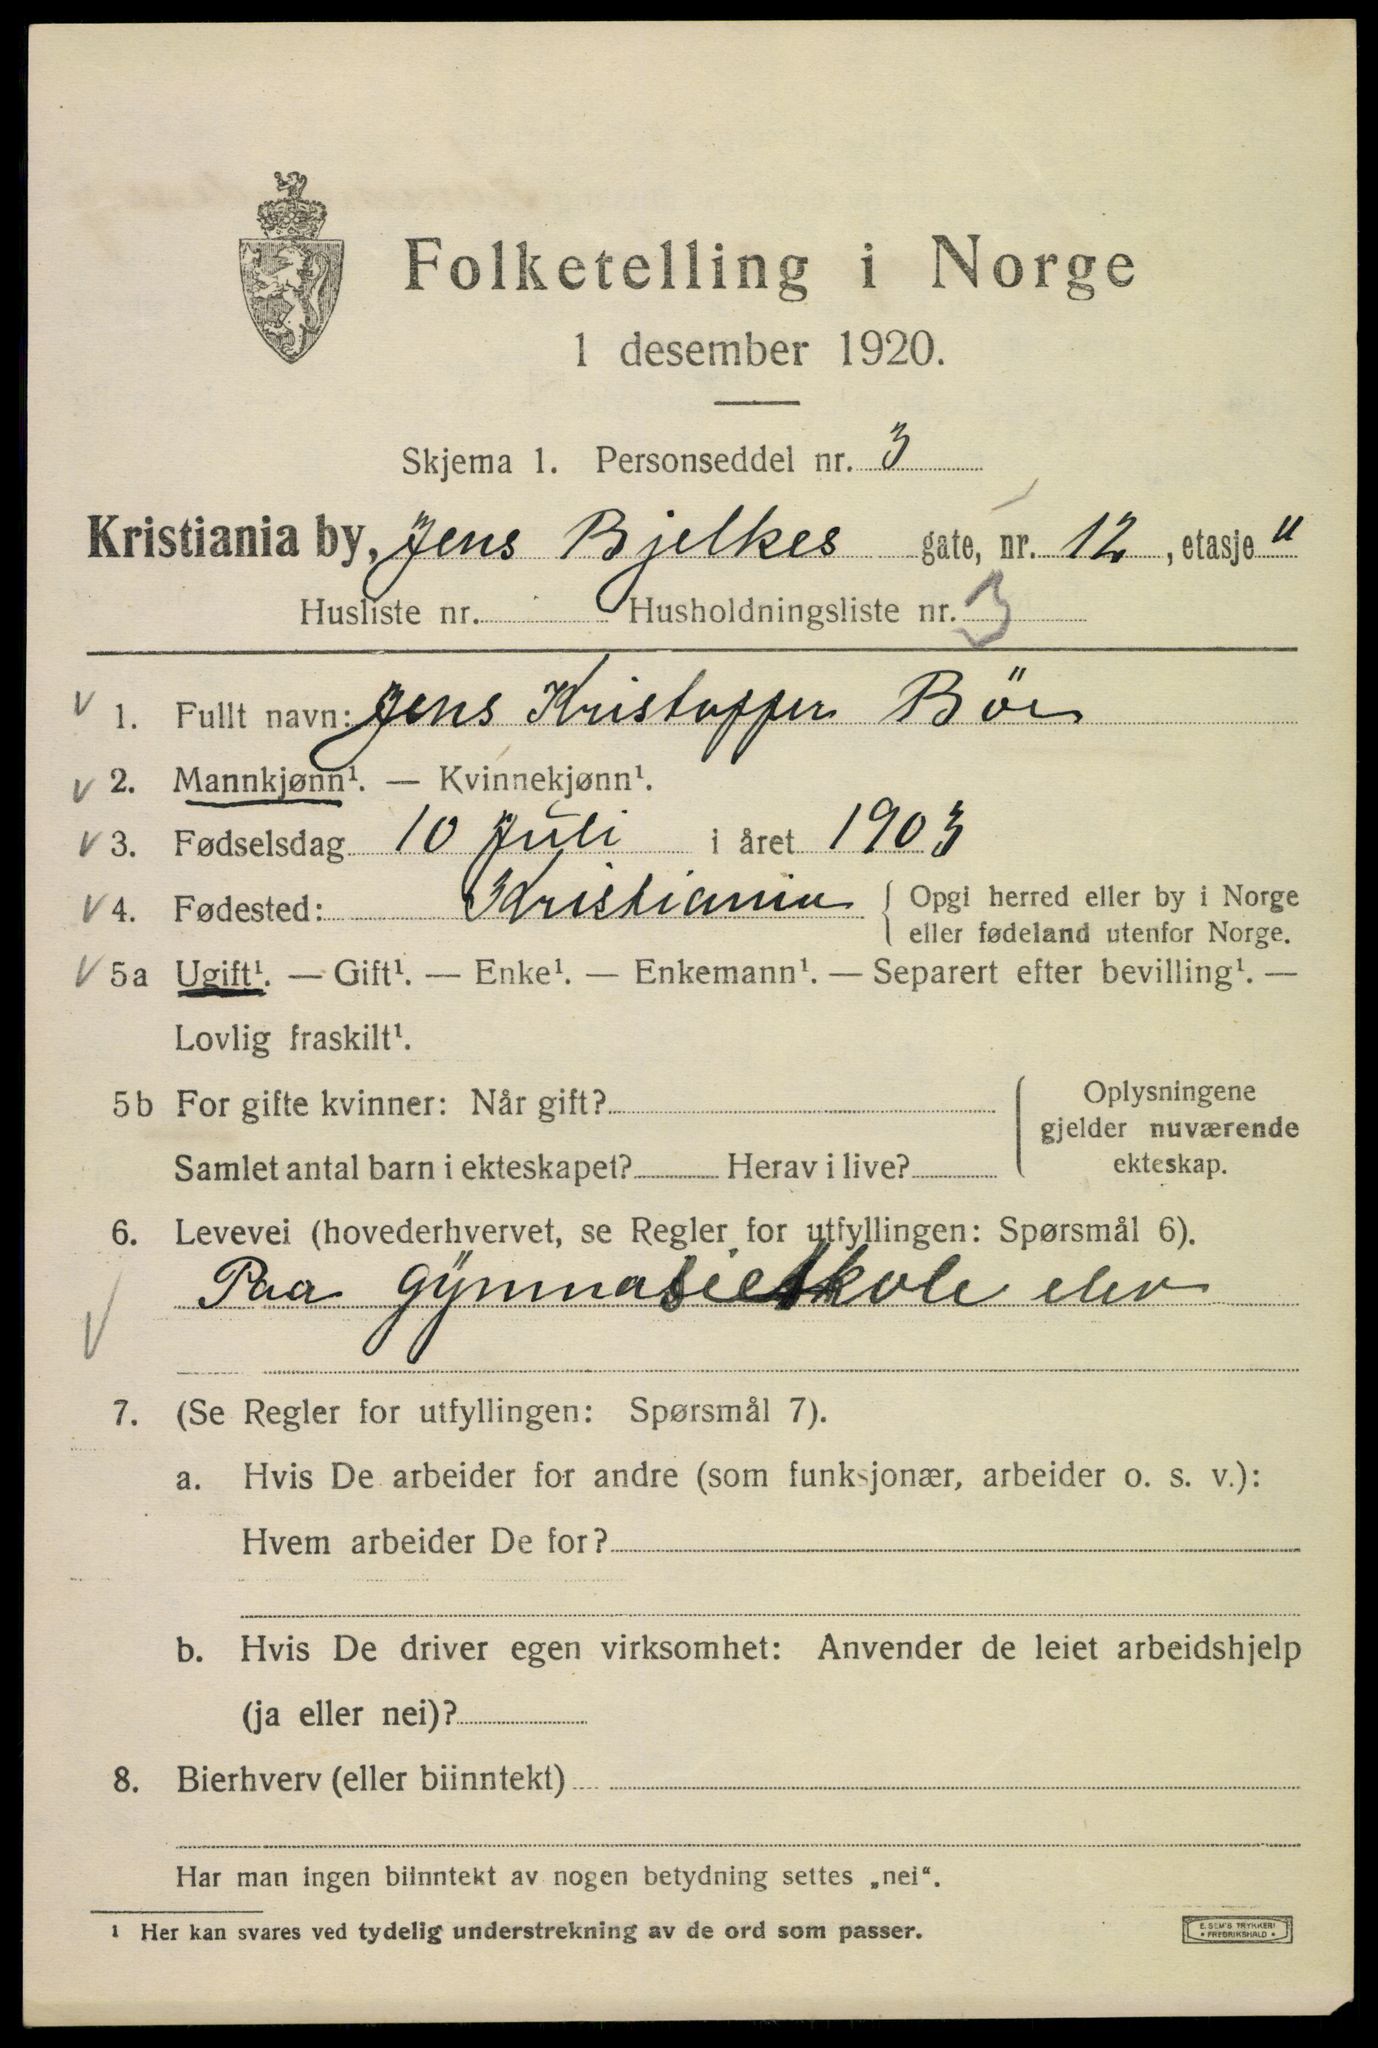 Folketelling i Norge
1 desember 1920.
Skjema 1. Personseddel nr. 3
Kristiania by, Jens Bjelkes gate, nr. 12, etasje "
Husliste nr. Husholdningsliste nr. 3
1. Fullt navn: Jens Kristoffer Böe
2. Mannkjønn¹. — Kvinnekjønn¹.
3. Fødselsdag 10 Juli i året 1903
4. Fødested: Kristiania { Opgi herred eller by i Norge
eller fødeland utenfor Norge.
5a Ugift¹. — Gift¹. — Enke¹. — Enkemann¹. — Separert efter bevilling¹. —
Lovlig fraskilt¹.
5b For gifte kvinner: Når gift?
Samlet antal barn i ekteskapet? Herav i live?
Oplysningene
gjelder nuværende
ekteskap.
6. Levevei (hovederhvervet, se Regler for utfyllingen: Spørsmål 6).
Paa gymnasieskole elev
7. (Se Regler for utfyllingen: Spørsmål 7).
a. Hvis De arbeider for andre (som funksjonær, arbeider o. s. v.):
Hvem arbeider De for?
b. Hvis De driver egen virksomhet: Anvender de leiet arbeidshjelp
(ja eller nei)?
8. Bierhverv (eller biinntekt)
Har man ingen biinntekt av nogen betydning settes „nei“.
¹ Her kan svares ved tydelig understrekning av de ord som passer.
E. SEM'S TRYKKERI
• FREDRIKSHALD •